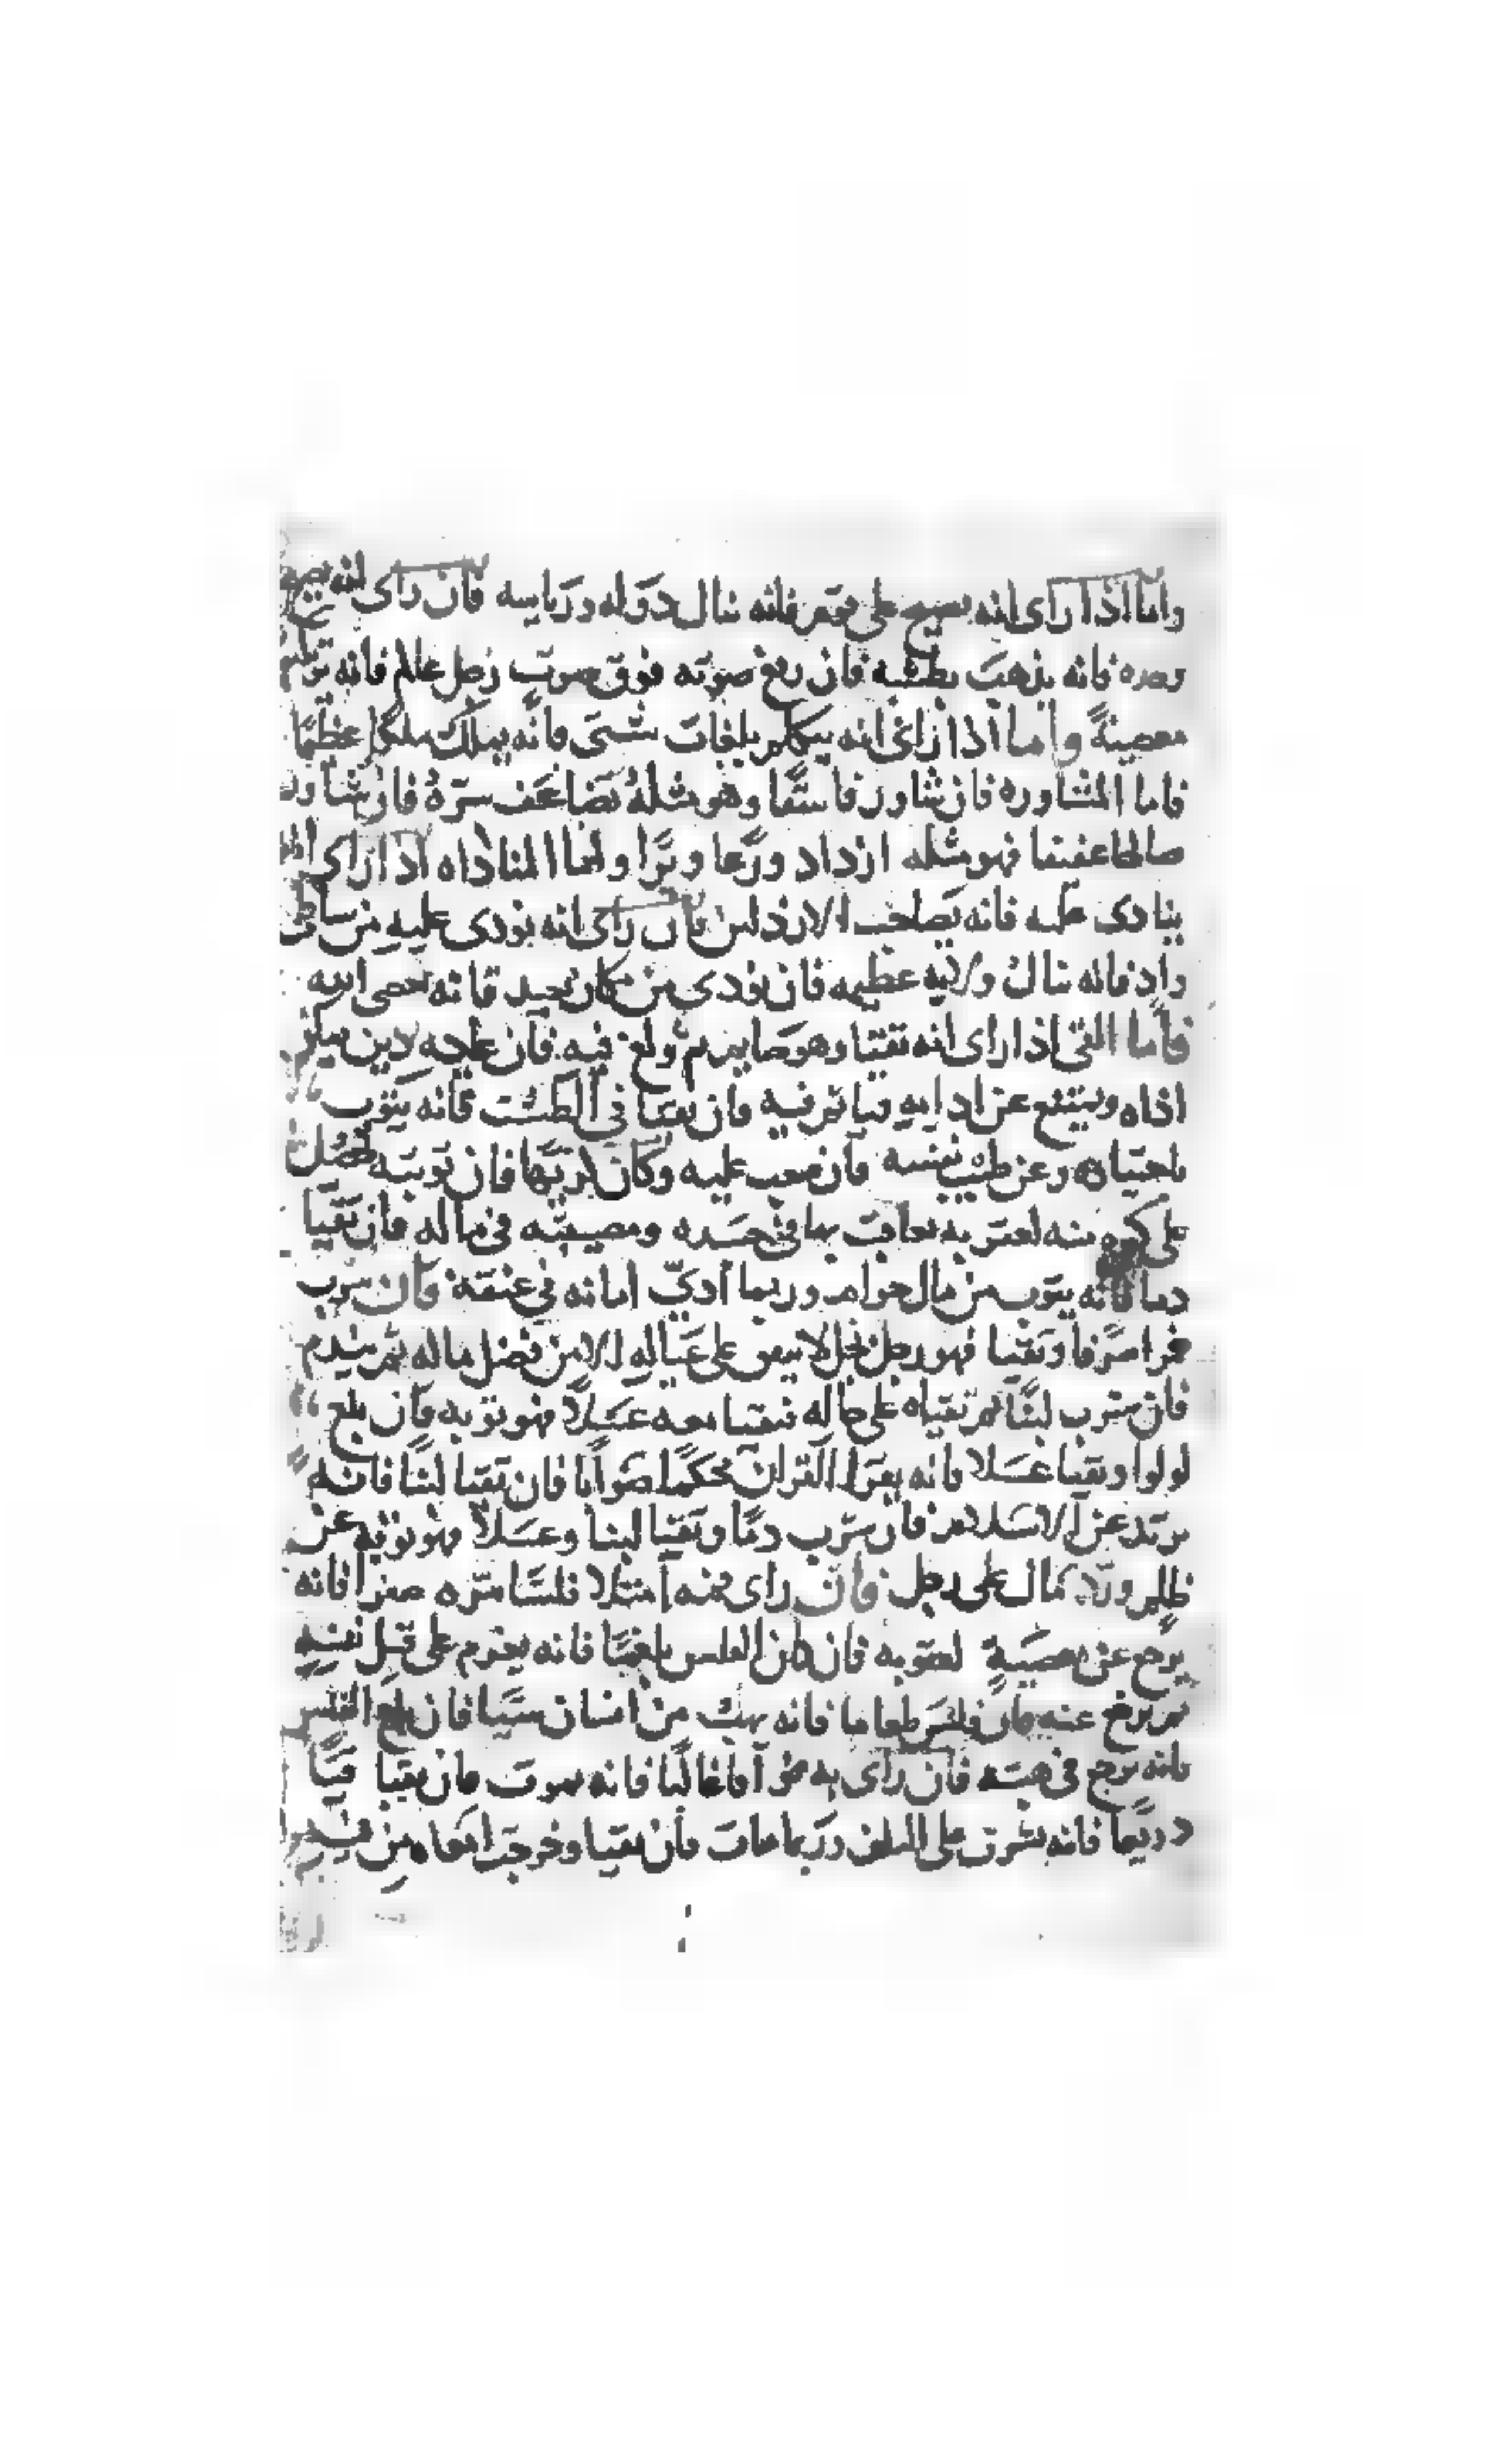 واما اذا راى انه يصيح على قوم فانه ينال دوله ورياسه فان راى انه يصيح
وحده فانه يذهب بطشه فان رفع صوته فوق صوت رجل عالم فانه يرتكب
معصيةً واما اذا راى انه يتكلم بلغات شتى فانه يملك ملكا عظيمًا
فاما المشاوره فان شاور فاسقًا وهو مثلهُ تضاعف سرّهُ فان شاور
صالحا عفيفا فهو مثله ازداد ورَعا وبرًا واما المناداه اذا راى انه
ينادى عليه فانه يصاحب الارذلين فان راى انه نودى عليهِ من شاطى
وادٍ فانه ينال ولايه عظيمه فان نودى من مكان بعيد فانه يعصى الله
فاما القى اذا راى انه تقيا وهو صايم ثم ولغ فيه فان عليه دين
اذاه ويمتنع عن ادايهِ فياثم فيه فان تقيا فى الطست فانه يتوب
باختياره وعن طيب نفسه فان صعب عليه وكان كريهًا فان توبته
على كره منه لعقوبه يعاقب بها فى جسده ومصيبته فى ماله فان تقيّا
دما فانه يتوب من مال حرام وربما أديّ امانه فى عنقه فان شرب
خمرا صرفا وتقيا فهو رجل بخل لا ينفق على عيالهِ الا من فضل ماله ثم يندم
فان شرب لبنًا ثم تقياه على حاله فتقيا معه عسلًا فهو توبه فان بلع
لولوا وتقيا عسلا فانه يقرا القران محكمًا صوابا فان تقيا لبنًا فانه
يرتد عن الاسلام فان شرب دمًا وتقيا لبنا وعسلًا فهو توبه عن
ظلم وردّ مال على رجل فان راى فمه امتلا قلسًا مرّه صفرا فانه
يرجع عن معصيةٍ لعقوبه فان كان القلس بلغمًا فانه يعزم على قتل نفسه
ثم يرجع عنه فان قلس طعاما فانه يهب من انسان شيا فان بلع القلس
فانه يرجع فى هبته فان راى به فواقا غالبًا فانه يموت فان تقيا قيئًا
دريعا فانه يشرف على التلف وربما مات فان تقيا وخرجت امعاه من